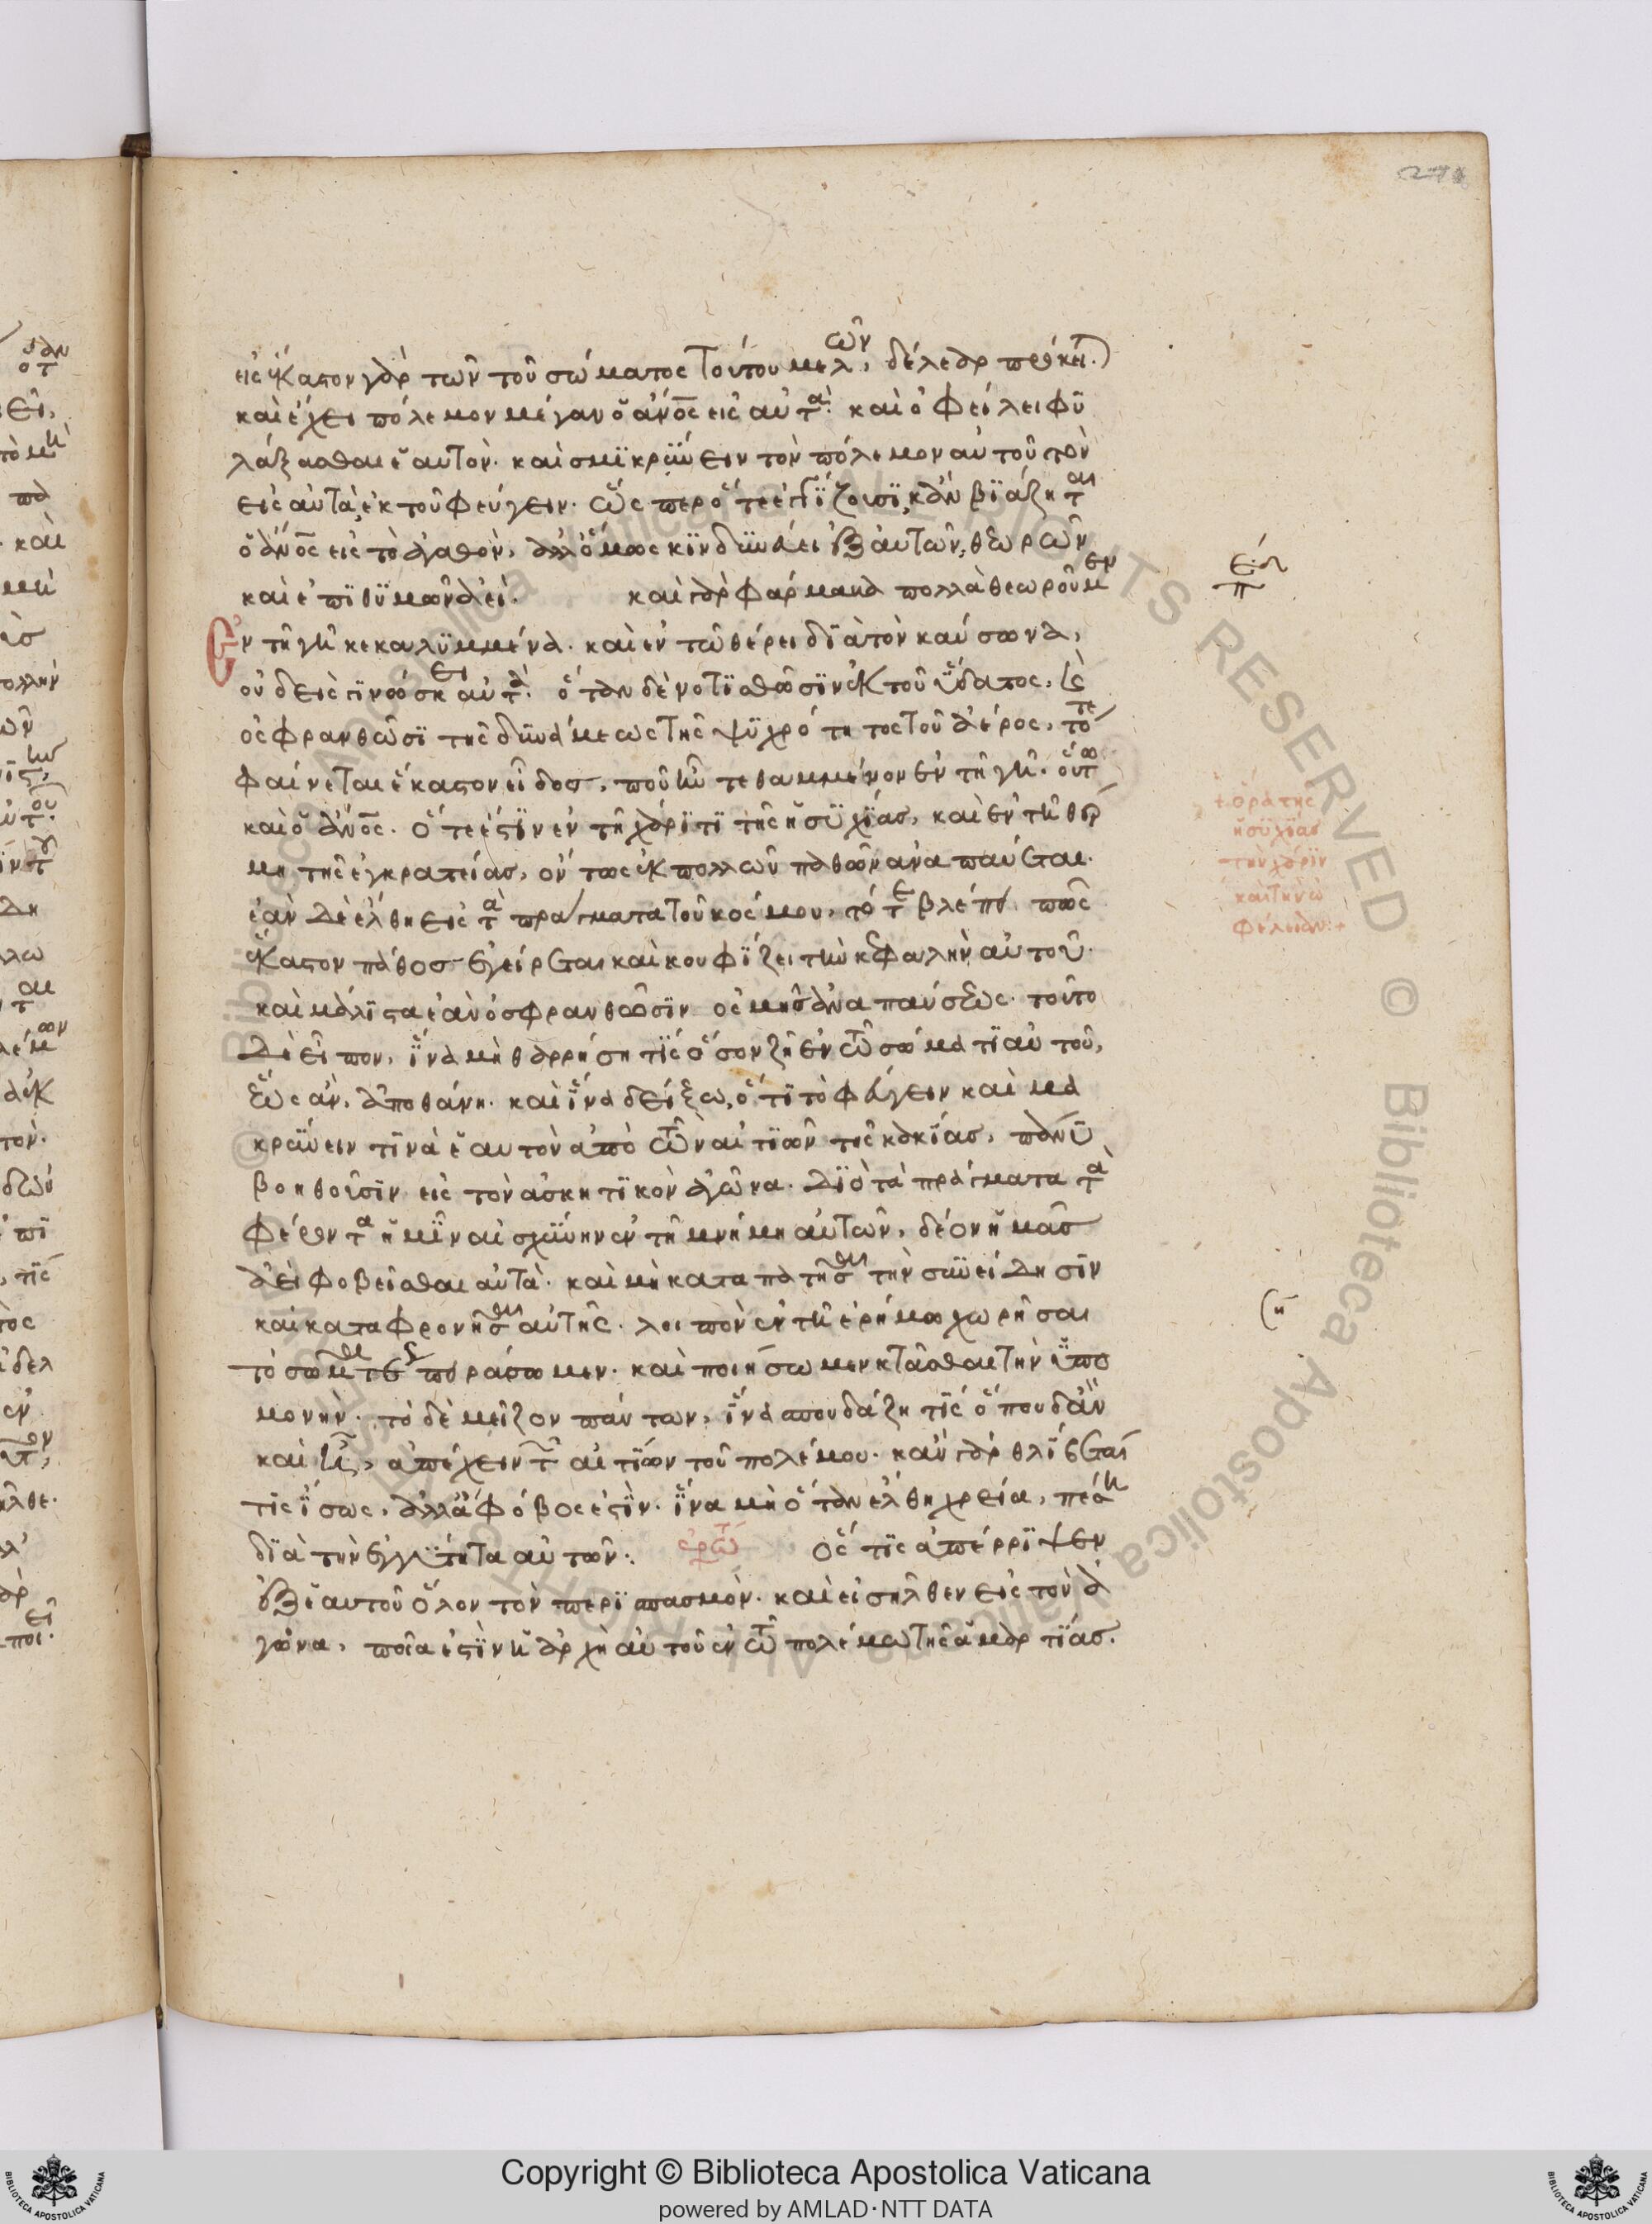 εἰς ἕκαστον γὰρ τῶν τοῦ σώματος τούτου μελῶν, δέλεαρ πρόκειτ.
καὶ ἔχει πόλεμον μέγαν ὁ ἄνος εἰς αὐτά. καὶ ὀφείλει φυ
λάξασθαι ἑαυτὸν. καὶ σμικρύνειν τὸν πόλεμον αὐτοῦ τὸν
εἰς αὐτὰ, ἐκ τοῦ φεύγειν. ὥσπερ ὅτε ἐγγίζουσι, κἂν βιάζηται
ὁ ἄνος εἰς τὸ ἀγαθὸν, ἀλλ' ὅμως κινδυνεύει ἐξ αὐτῶν, θεωρῶν
καὶ ἐπιθυμῶν ἀεί. καὶ γὰρ φάρμακα πολλὰ θεωροῦμεν
Ἐν τῇ γῇ κεκαλυμμένα. καὶ ἐν τῷ θέρει διὰ τὸν καύσωνα,
οὐδεὶς γινώσκει αὐτά. ὅταν δὲ νοτισθῶσιν ἐκ τοῦ ὕδατος, καὶ
ὀσφρανθῶσι τῆς δυνάμεως τῆς ψυχρότητος τοῦ ἀέρος, τότε
φαίνεται ἕκαστον εἶδος, ποῦ ἦν τεθαμμένον ἐν τῇ γῇ. οὕτω
καὶ ὁ ἄνος. ὅτε ἐστὶν ἐν τῇ χάριτι τῆς ἡσυχίας, καὶ ἐν τῇ θέρ
μῃ τῆς ἐγκρατείας, ὄντως ἐκ πολλῶν παθῶν ἀναπαύεται.
ἐὰν δὲ ἔλθῃ εἰς τὰ πράγματα τοῦ κόσμου, τότε βλέπει πῶς
ἕκαστον πάθος ἐγείρεται καὶ κουφίζει τὴν κεφαλὴν αὐτοῦ.
καὶ μάλιστα ἐὰν ὀσφρανθῶσιν ὀσμῆς ἀναπαύσεως. τοῦτο
δὲ εἶπον, ἵνα μὴ θαρρήσῃ τὶς ὅσον ζῇ ἐν τῷ σώματι αὐτοῦ,
ἕως ἂν, ἀποθάνῃ. καὶ ἵνα δείξω, ὅτι τὸ φύγειν καὶ μα
κρύνειν τινὰ ἑαυτὸν ἀπὸ τῶν αἰτιῶν τῆς κακίας, πάνυ
βοηθοῦσιν εἰς τὸν ἀσκητικὸν ἀγῶνα. διὸ τὰ πράγματα τὰ
φέροντα ἡμῖν αἰσχύνην ἐν τῇ μνήμῃ αὐτῶν, δέον ἡμᾶς
ἀεὶ φοβεῖσθαι αὐτὰ. καὶ μὴ καταπατῆσαι τὴν συνείδησιν
καὶ καταφρονῆσαι αὐτῆς. λοιπὸν ἐν τῇ ἐρήμω χωρῆσαι
τὸ σῶμα τέως πειράσωμεν. καὶ ποιήσωμεν κτᾶσθαι τὴν ὑπο
μονὴν. τὸ δὲ μεῖζον πάντων, ἵνα σπουδάζῃ τὶς ὅπου δ' ἂν
καὶ ᾖ, ἀπέχειν τῶν αἰτιῶν τοῦ πολέμου. κἂν γὰρ θλίβεται
τὶς ἴσως, ἀλλ' ἄφοβος ἐστὶν. ἵνα μὴ ὅταν ἔλθῃ χρεία, πέσῃ
διὰ τὴν ἐγγύτητα αὐτῶν. ἐρώτ Ὅς τις ἀπέρριψεν
ἐξ ἑαυτοῦ ὅλον τὸν περισπασμὸν. καὶ εἰσῆλθεν εἰς τὸν ἀ
γῶνα, ποία ἐστὶν ἡ ἀρχὴ αὐτοῦ ἐν τῷ πολέμω τῆς ἁμαρτίας.
ὅρα τῆς
ἡσυχίας
τὴν χάριν
καὶ τὴν ὠ
φέλειαν:+
Copyright © Biblioteca Apostolica Vaticana
powered by AMLAD·NTT DATA